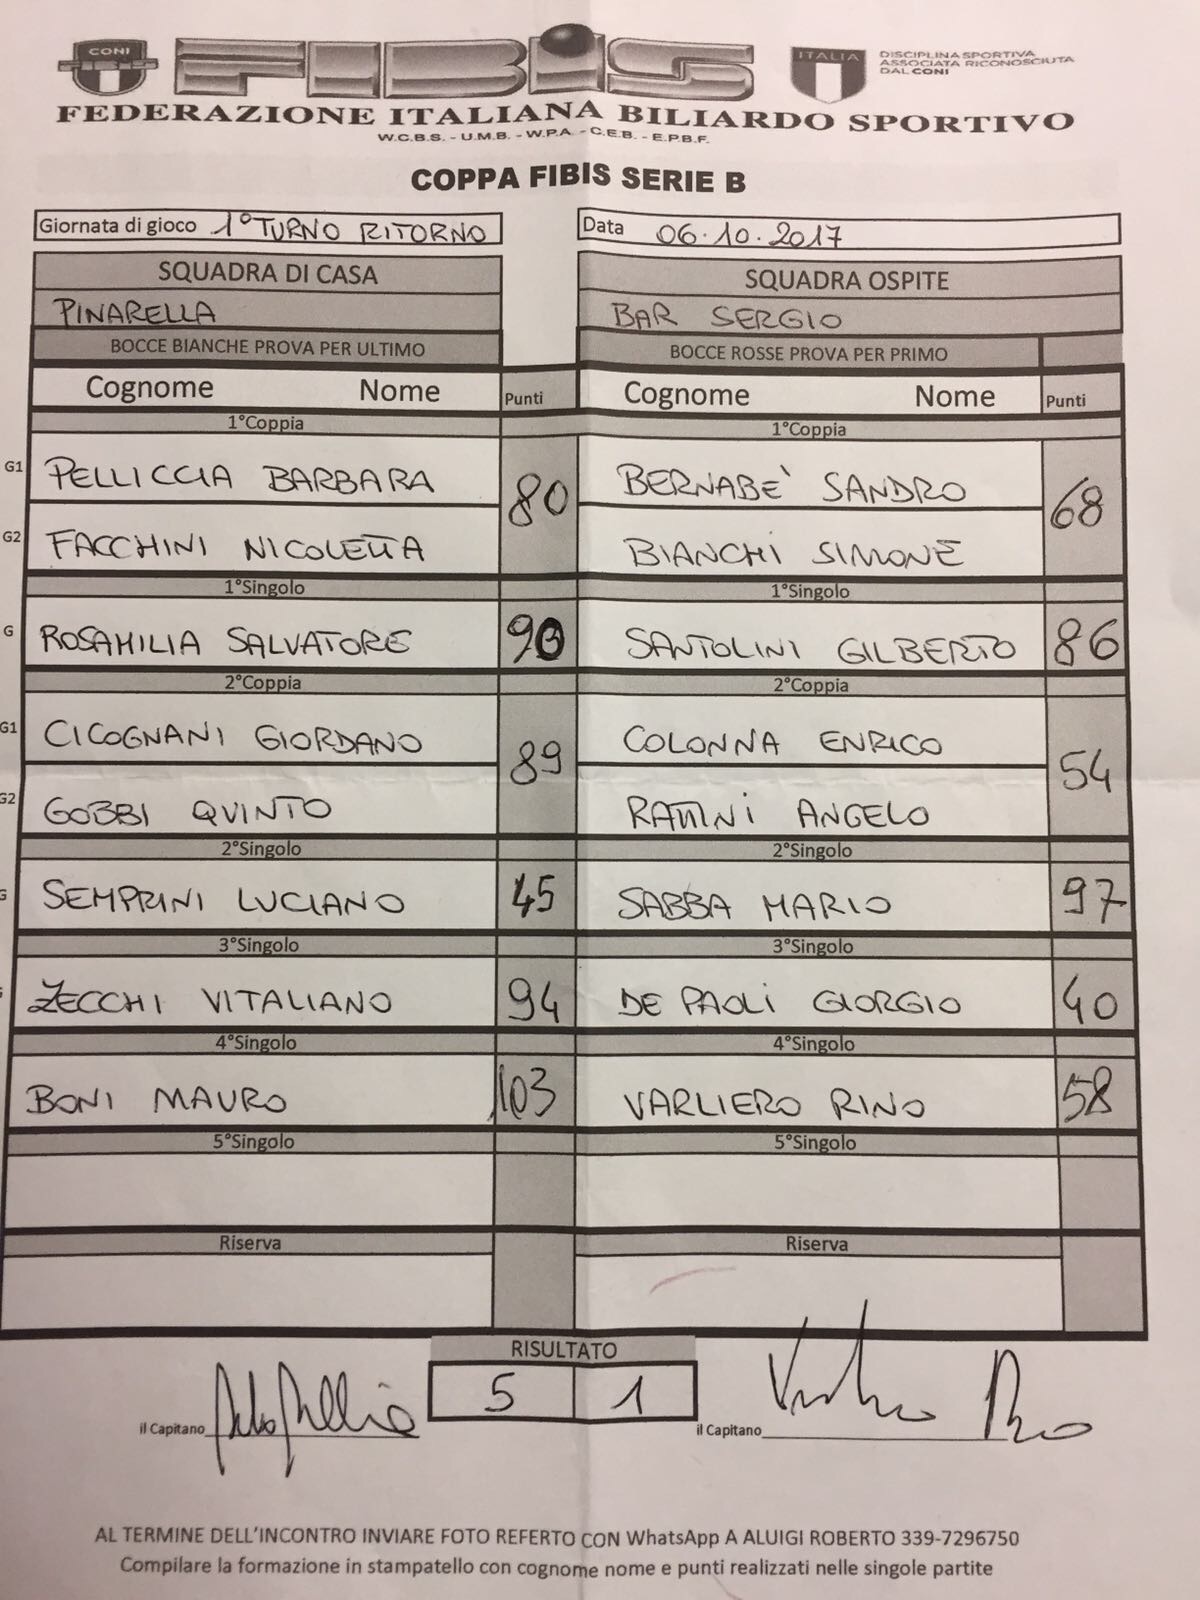 CONI
FIBiS
ITALIA
DISCIPLINA SPORTIVA
ASSOCIATA RICONOSCIUTA
DAL CONI
FEDERAZIONE ITALIANA BILIARDO SPORTIVO
W.C.B.S. - U.M.B. - W.P.A. - C.E.B. - E.P.B.F.
COPPA FIBIS SERIE B
Giornata di gioco 1° TURNO RITORNO Data 06.10.2017
SQUADRA DI CASA SQUADRA OSPITE
PINARELLA BAR SERGIO
BOCCE BIANCHE PROVA PER ULTIMO BOCCE ROSSE PROVA PER PRIMO
Cognome Nome Punti Cognome Nome Punti
1°Coppia 1°Coppia
G1 PELLICCIA BARBARA 80 BERNABE' SANDRO 68
G2 FACCHINI NICOLETTA BIANCHI SIMONE
1°Singolo 1°Singolo
G ROSAMILIA SALVATORE 90 SANTOLINI GILBERTO 86
2°Coppia 2°Coppia
G1 CICOGNANI GIORDANO 89 COLONNA ENRICO 54
G2 GOBBI QUINTO RATTINI ANGELO
2°Singolo 2°Singolo
G SEMPRINI LUCIANO 45 SABBA MARIO 97
3°Singolo 3°Singolo
ZECCHI VITALIANO 94 DE PAOLI GIORGIO 40
4°Singolo 4°Singolo
BONI MAURO 103 VARLIERO RINO 58
5°Singolo 5°Singolo
Riserva Riserva
RISULTATO
5 1
il Capitano il Capitano
AL TERMINE DELL'INCONTRO INVIARE FOTO REFERTO CON WhatsApp A ALUIGI ROBERTO 339-7296750
Compilare la formazione in stampatello con cognome nome e punti realizzati nelle singole partite